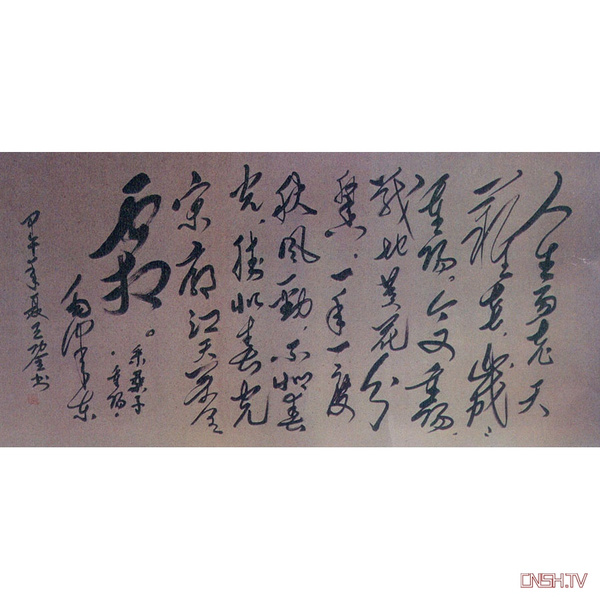 人生易老天
难老，岁岁
重阳。今又重阳，
战地黄花分
外香。一年一度
秋风劲，不似春
光，胜似春光
寥廓江天万里
霜。
采桑子
·重阳·
毛泽东
甲午年夏王书
CNSH.TV